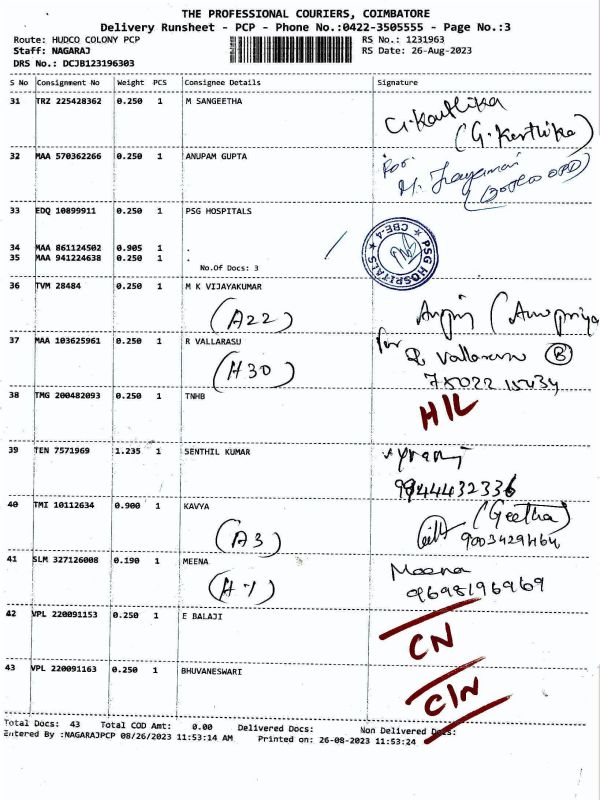 THE PROFESSIONAL COURIERS, COIMBATORE
Delivery Runsheet - PCP - Phone No.:0422-3505555 - Page No.:3
Route: HUDCO COLONY PCP RS No.: 1231963
Staff: NAGARAJ RS Date: 26-Aug-2023
DRS No.: DCJB123196303
S No Consignment No Weight PCS Consignee Details Signature
31 TRZ 225428362 0.250 1 M SANGEETHA
G.Karthika
(G.Karthika)
32 MAA 570362266 0.250 1 ANUPAM GUPTA
For
33 EDQ 10899911 0.250 1 PSG HOSPITALS
34 MAA 861124502 0.905 1 .
35 MAA 941224638 0.250 1 .
No.Of Docs: 3
PSG HOSPITALS CBE-4
36 TVM 28484 0.250 1 M K VIJAYAKUMAR
(A22)
37 MAA 103625961 0.250 1 R VALLARASU
for
(H30)
38 TMG 200482093 0.250 1 TNHB
H/L
39 TEN 7571969 1.235 1 SENTHIL KUMAR
9944432336
40 TMI 10112634 0.900 1 KAVYA
(Geetha)
(A3)
41 SLM 327126008 0.190 1 MEENA
Meena
(H7)
9698196969
42 VPL 220091153 0.250 1 E BALAJI
CN
43 VPL 220091163 0.250 1 BHUVANESWARI
C/N
Total Docs: 43 Total COD Amt: 0.00 Delivered Docs: Non Delivered Docs:
Entered By :NAGARAJPCP 08/26/2023 11:53:14 AM Printed on: 26-08-2023 11:53:24